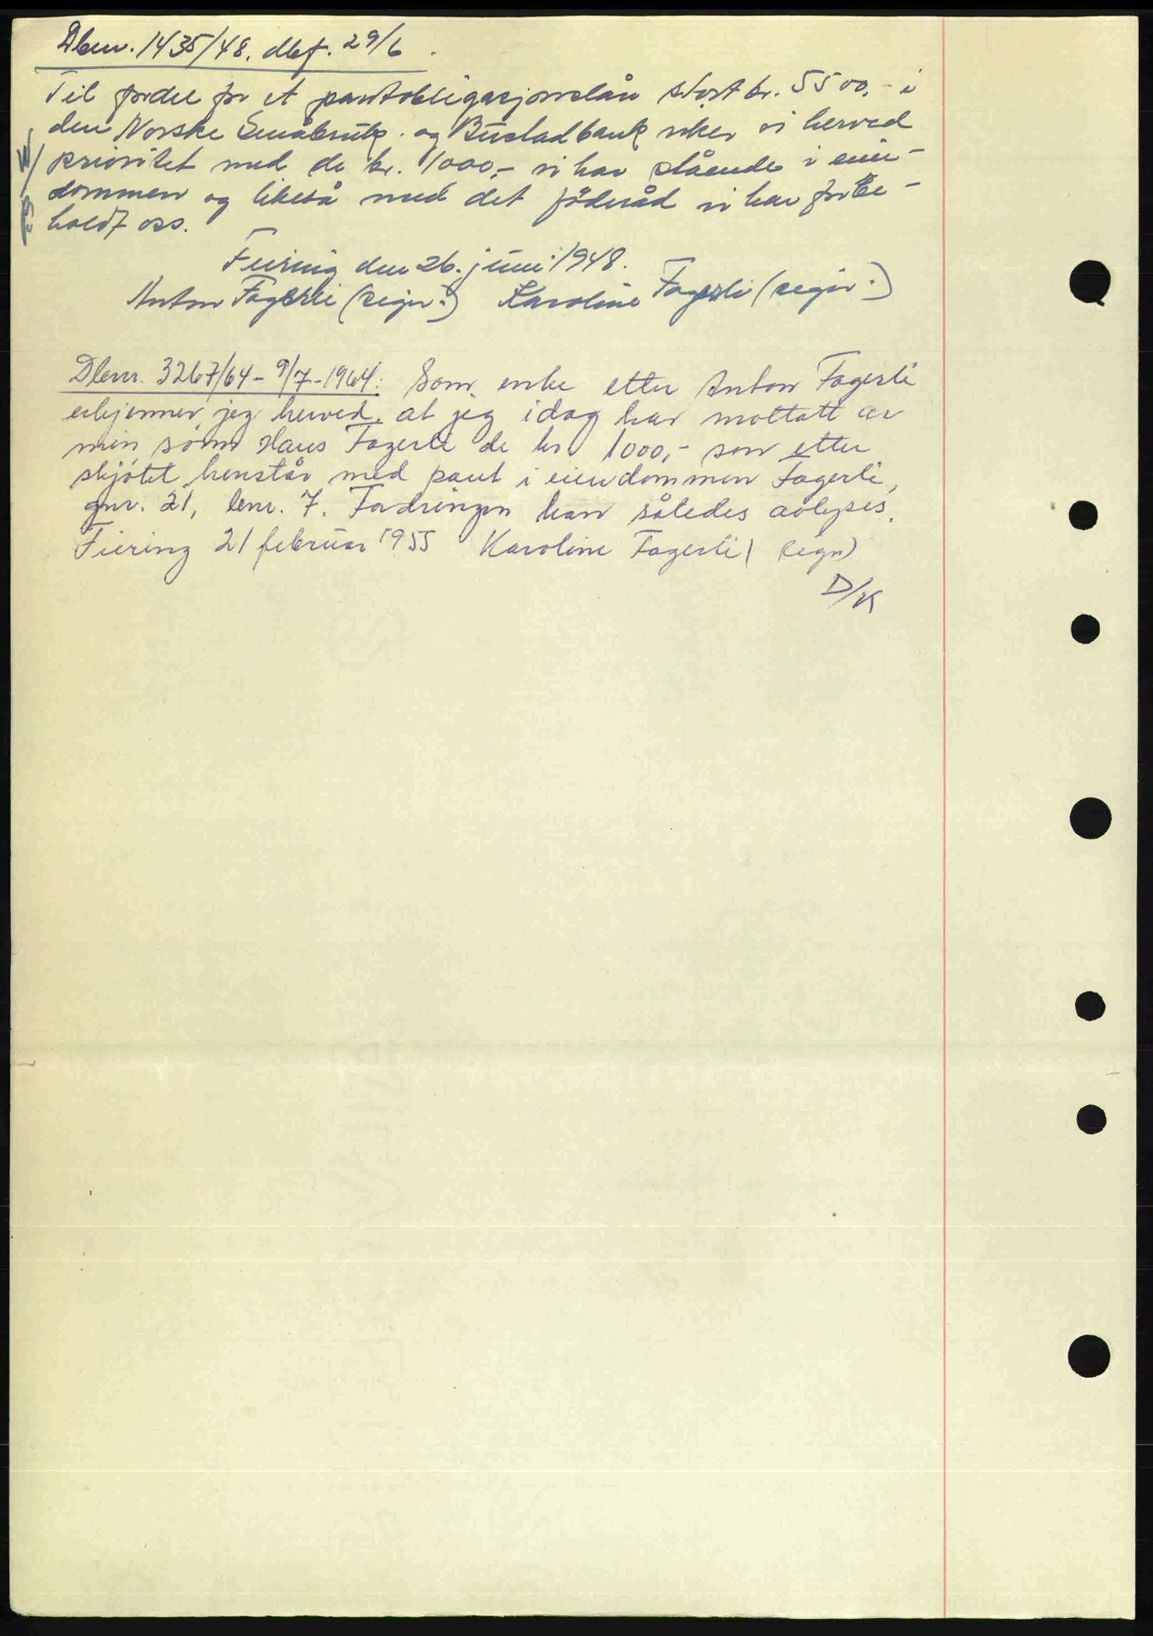 Dbnr. 1435/48, dbf. 29/6.
Til fordel for et pantobligasjonslån stort kr. 5500,- i
den Norske Småbruk- og Bustadbank viker vi herved
prioritet med de kr. 1000,- vi har stående i eien-
dommen og likeså med det föderåd vi har forbe-
holdt oss.
Feiring den 26. juni 1948.
Anton Fagerli (sign.) Karoline Fagerli (sign.)
Dbnr. 3267/64 - 9/7-1964: Som enke etter Anton Fagerli
erkjenner jeg herved, at jeg idag har mottatt av
min sønn Hans Fagerli de kr 1000,- som etter
skjötet henstår med pant i eiendommen Fagerli,
gnr. 21, bnr. 7. Fordringen kan således avlyses.
Fiering 21 februar 1955 Karoline Fagerli (sign)
D/K